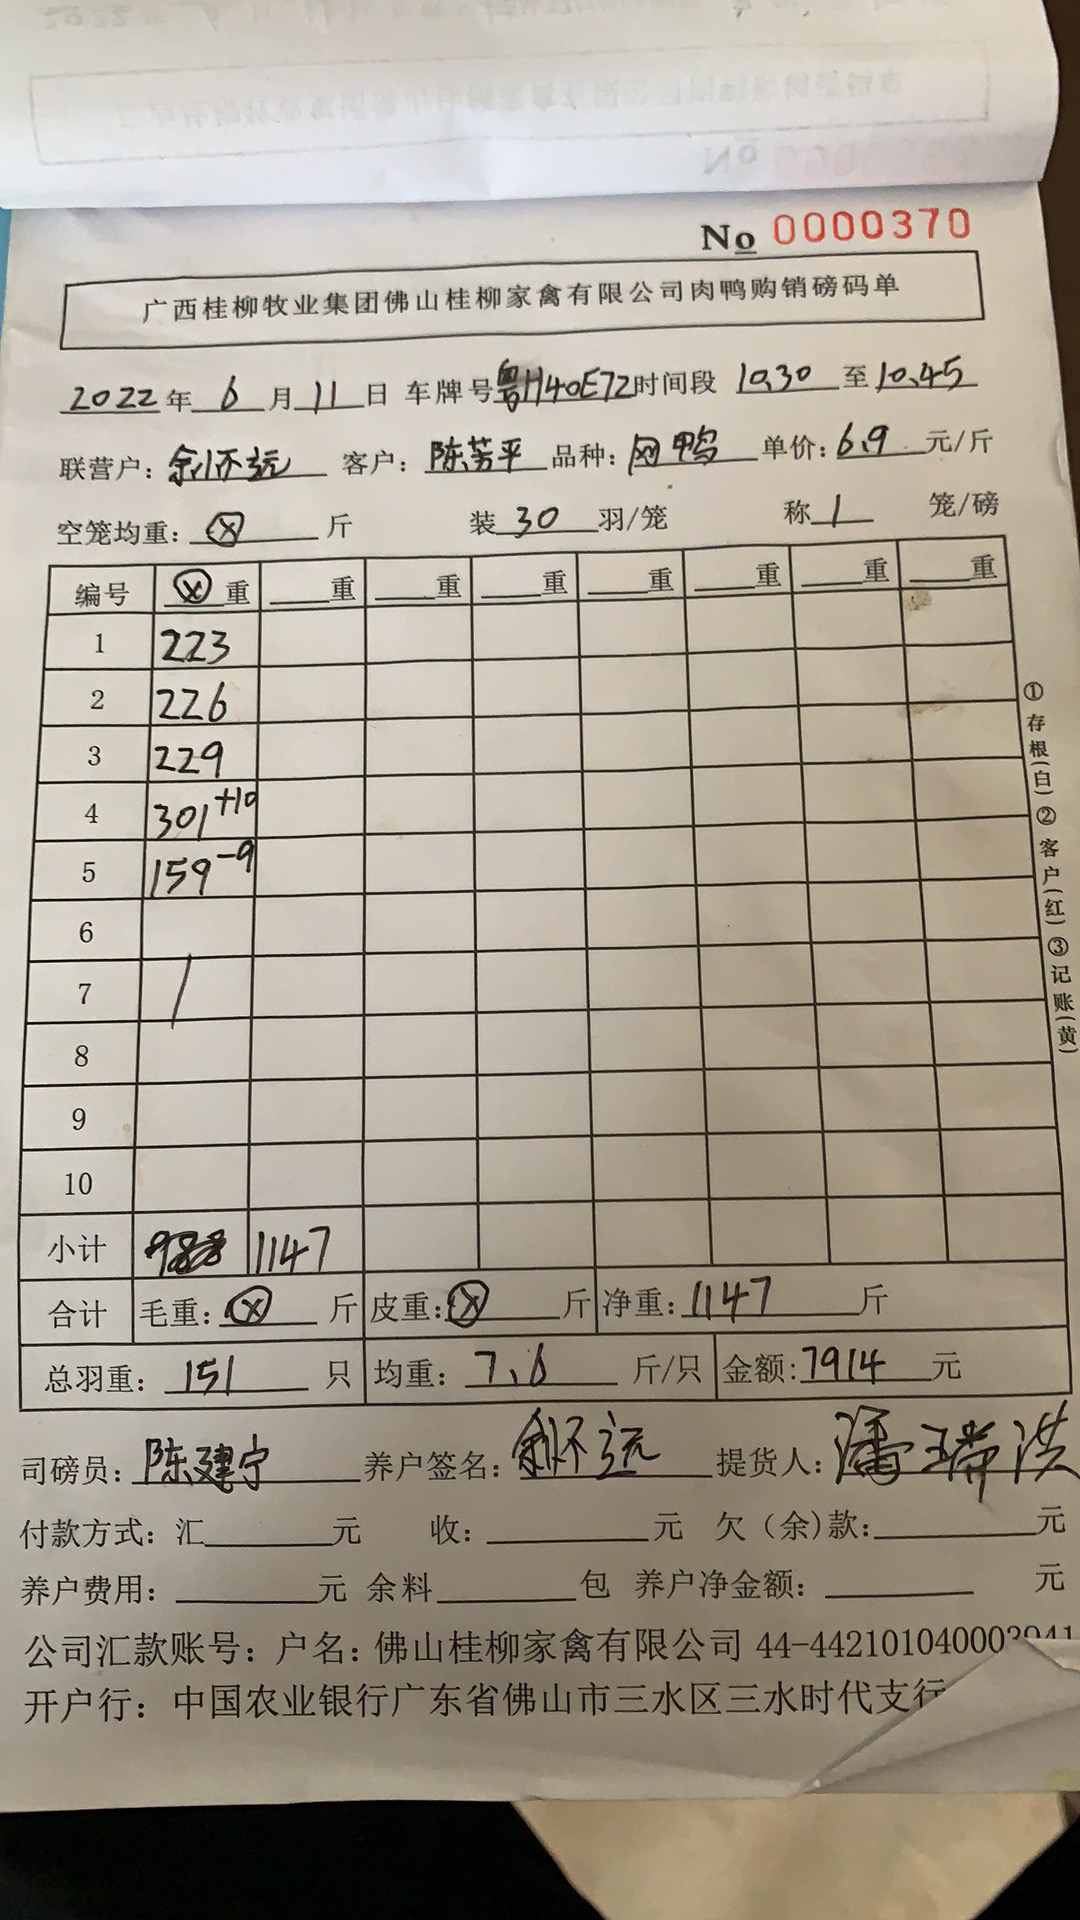 No 0000370
广西桂柳牧业集团佛山桂柳家禽有限公司肉鸭购销磅码单
2022年6月11日 车牌号粤H40E72时间段 10.30 至 10.45
联营户:余怀远 客户:陈芳平 品种:网鸭 单价:6.9元/斤
空笼均重:ⓧ斤 装30羽/笼 称1笼/磅
编号 ⓧ重 重 重 重 重 重 重 重
1 223
2 226
3 229
4 301+10
5 159-9
6
7 /
8
9
10
小计 1147
合计 毛重:ⓧ斤 皮重:ⓧ斤 净重:1147斤
总羽重:151只 均重:7.6斤/只 金额:7914元
司磅员:陈建宁 养户签名:余怀远 提货人:潘瑞洪
付款方式:汇 元 收: 元 欠(余)款: 元
养户费用: 元 余料 包 养户净金额: 元
公司汇款账号:户名:佛山桂柳家禽有限公司 44-442101040003941
开户行:中国农业银行广东省佛山市三水区三水时代支行
①存根(白)②客户(红)③记账(黄)